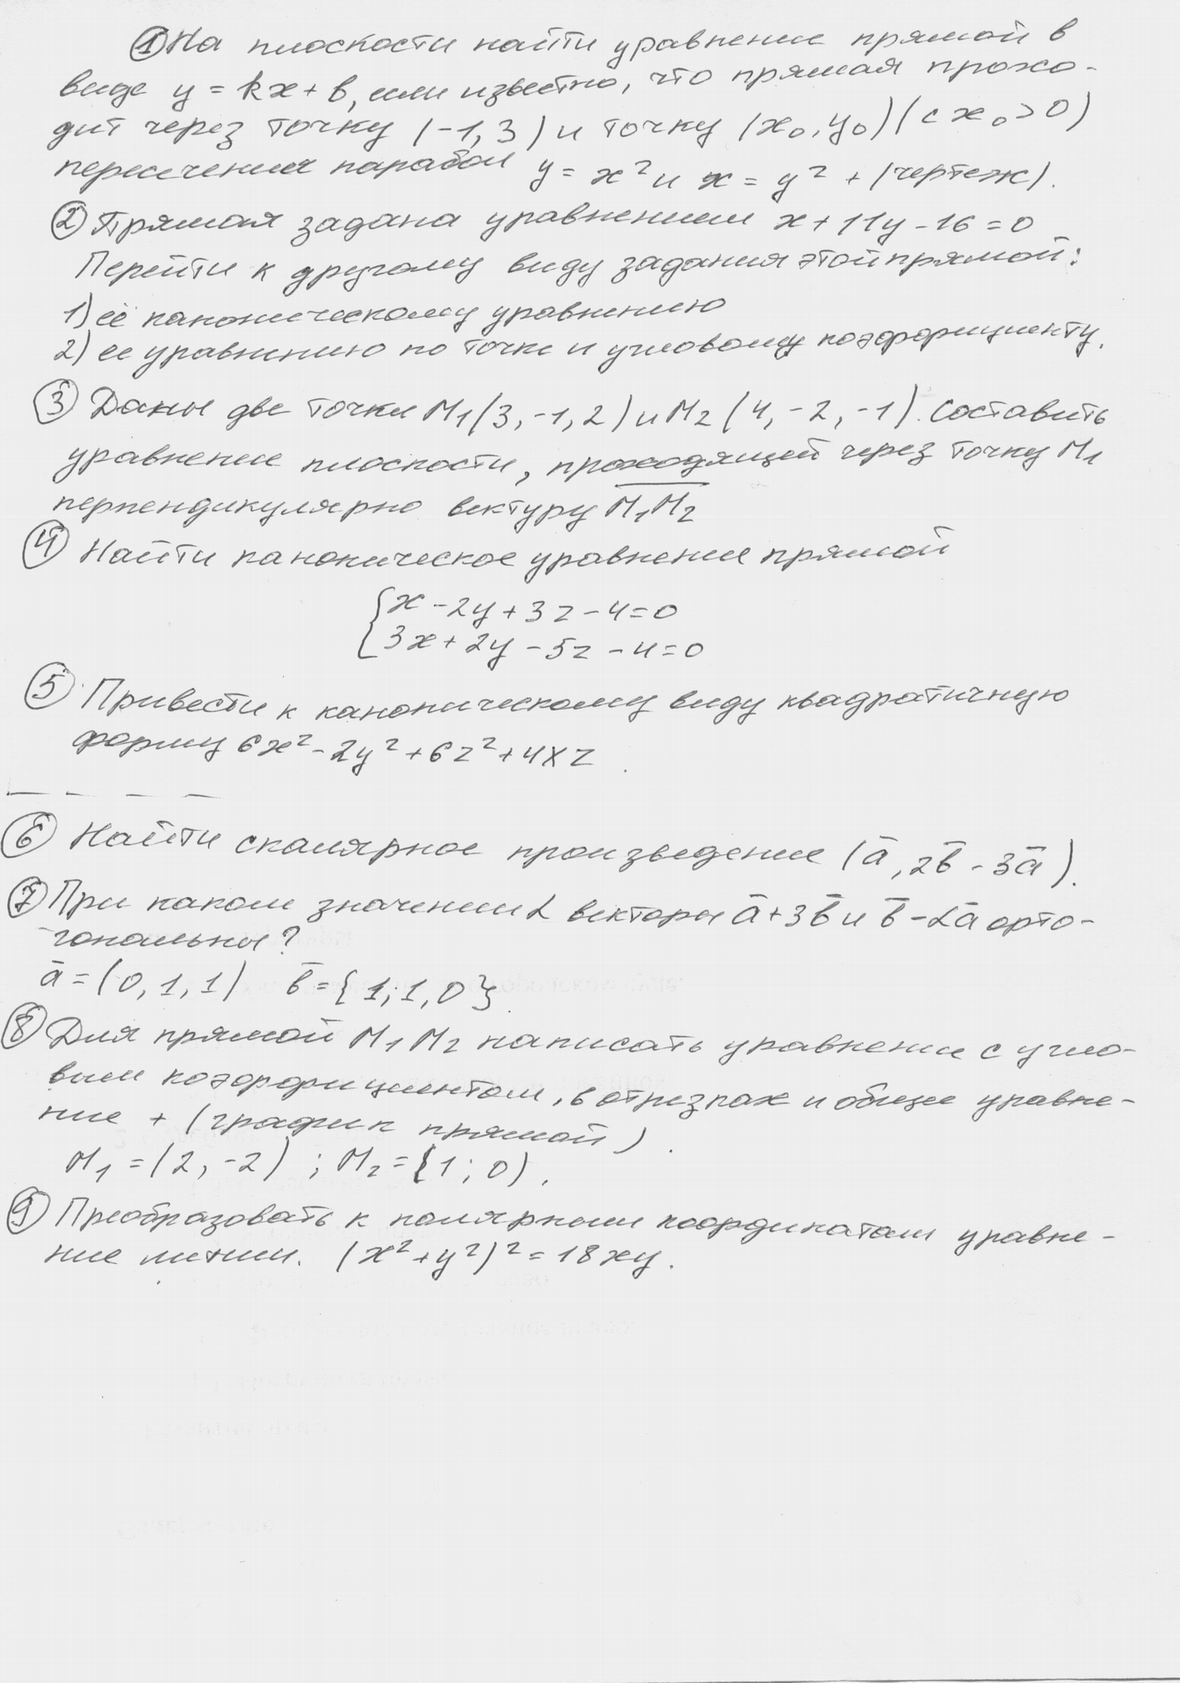 ① На плоскости найти уравнение прямой в
виде y = kx + b, если известно, что прямая прохо-
дит через точку (-1, 3) и точку (x₀, y₀) (с x₀ > 0)
пересечения парабол y = x² и x = y² + (чертеж).
② Прямая задана уравнением x + 11y - 16 = 0
Перейти к другому виду задания этой прямой:
1) её каноническому уравнению
2) ее уравнению по точке и угловому коэффициенту.
③ Даны две точки M₁(3, -1, 2) и M₂(4, -2, -1). Составить
уравнение плоскости, проходящей через точку M₁
перпендикулярно вектуру M̅₁M̅₂
④ Найти каноническое уравнение прямой
{ x - 2y + 3z - 4 = 0
3x + 2y - 5z - 4 = 0
⑤ Привести к каноническому виду квадратичную
форму 6x² - 2y² + 6z² + 4xz.
⑥ Найти скалярное произведение (a̅, 2b̅ - 3a̅).
⑦ При каком значении α векторы a̅ + 3b̅ и b̅ - αa̅ орто-
гональны?
a̅ = (0, 1, 1) b̅ = {1; 1, 0}.
⑧ Для прямой M₁M₂ написать уравнение с угло-
вым коэффициентом, в отрезках и общее уравне-
ние + (график прямой).
M₁ = (2, -2) ; M₂ = (1; 0).
⑨ Преобразовать к полярным координатам уравне-
ние линии. (x² + y²)² = 18xy.